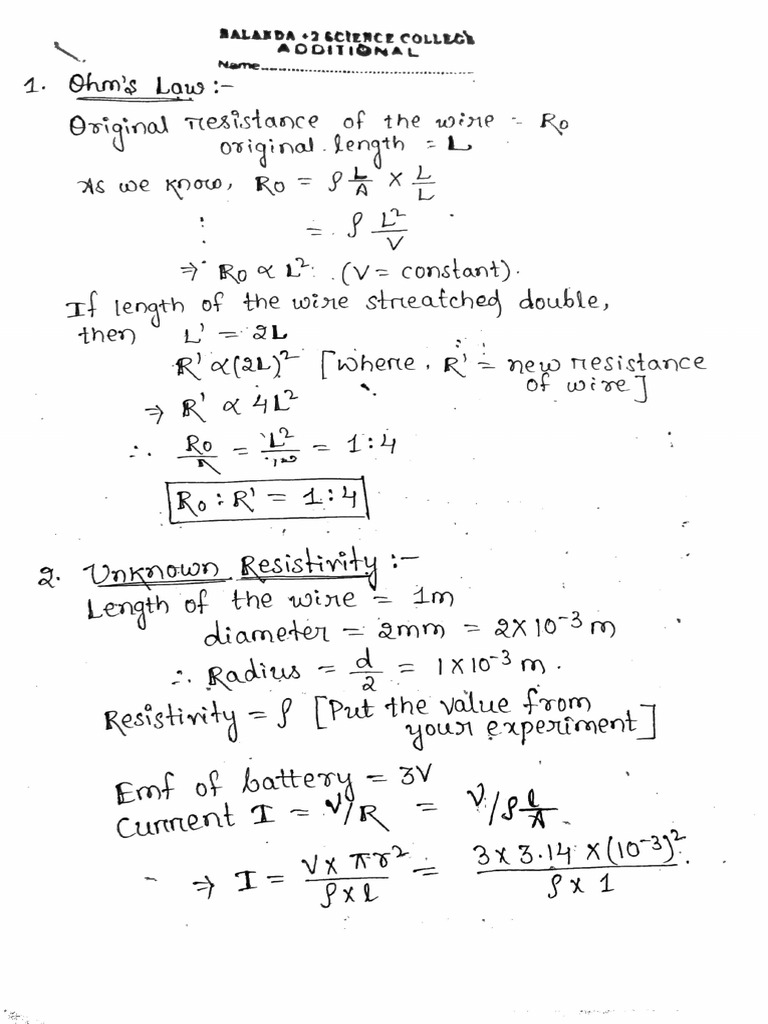 BALANDA +2 SCIENCE COLLEGE
ADDITIONAL
Name
1. Ohm's Law :-
Original resistance of the wire = R₀
original length = L
As we know, R₀ = ρ L/A × L/L
= ρ L²/V
⇒ R₀ ∝ L² (V = constant).
If length of the wire streatched double,
then L' = 2L
R' ∝ (2L)² [where, R' = new resistance
of wire]
⇒ R' ∝ 4L²
∴ R₀/R = L²/ = 1:4
R₀ : R' = 1:4
2. Unknown Resistivity :-
Length of the wire = 1m
diameter = 2mm = 2×10⁻³ m
∴ Radius = d/2 = 1×10⁻³ m.
Resistivity = ρ [Put the value from
your experiment]
Emf of battery = 3V
Current I = V/R = V/ρ l/A
⇒ I = V× πr² / ρ×l = 3×3.14×(10⁻³)² / ρ×1